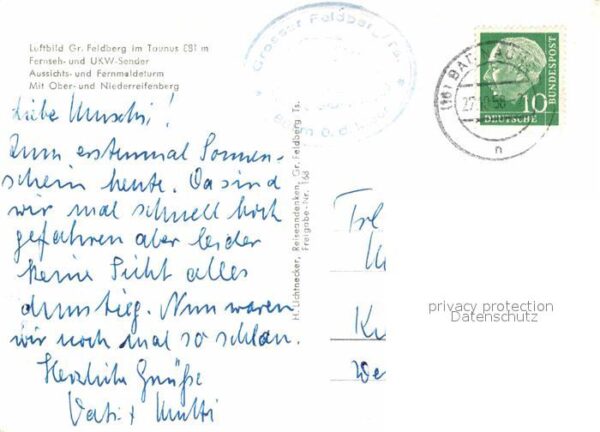 Luftbild Gr. Feldberg im Taunus 881 m
Fernseh- und UKW-Sender
Aussichts- und Fernmeldeturm
Mit Ober- und Niederreifenberg
Liebe Muschi!
Zum erstenmal Sonnen-
schein heute. Da sind
wir mal schnell hoch
gefahren aber leider
keine Sicht alles
dunstig. Nun waren
wir noch mal so schlau.
Herzliche Grüße
Vati + Mutti
H. Lichtnecker, Reiseandenken, Gr. Feldberg Ts.
Freigabe-Nr.
Grosser Feldberg/Ts.
(16) BAD
27.10.56
n
10
DEUTSCHE
BUNDESPOST
Frl
Ku
We
privacy protection
Datenschutz